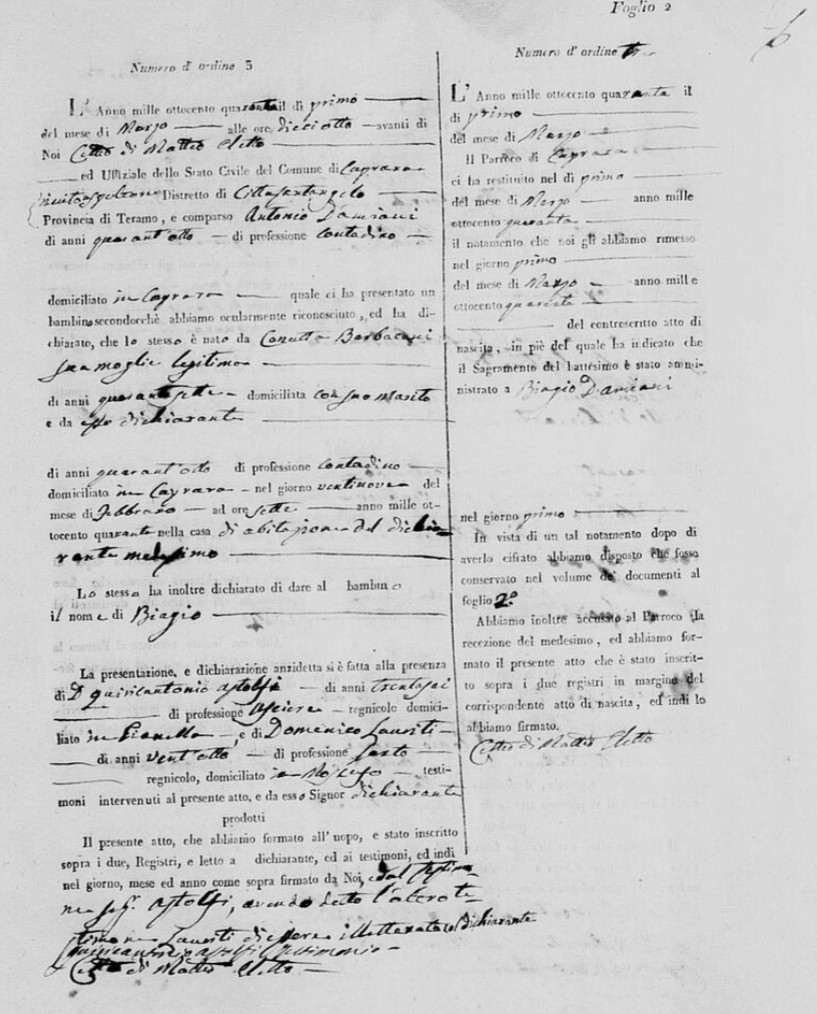 Foglio 2
Numero d' ordine 3
L' Anno mille ottocento quarantail di primo
del mese di Marzo alle ore dieciotto avanti di
Noi di Matteo Eletto
ed Uffiziale dello Stato Civile del Comune di Caprara
Distretto di Cittasantangelo
Provincia di Teramo, e comparso Antonio Damiani
di anni quarant'otto di professione contadino
domiciliato in Caprara quale ci ha presentato un
bambino secondocchè abbiamo ocularmente riconosciuto, ed ha di-
chiarato, che lo stesso è nato da Barbacani
sua moglie legitima
di anni quarantasette domiciliata con suo marito
e da esso dichiarante
di anni quarant'otto di professione contadino
domiciliato in Caprara nel giorno ventinove del
mese di Febbraro ad ore sette anno mille ot-
tocento quaranta nella casa di abitazione del dichia-
rante medesimo
Lo stesso ha inoltre dichiarato di dare al bambino
il nome di Biagio
La presentazione, e dichiarazione anzidetta si è fatta alla presenza
di D Quiricantonio Astolfi di anni trentasei
di professione usciere regnicolo domici-
liato in Pianella, e di Domenico Lauriti
di anni vent'otto di professione sarto
regnicolo, domiciliato in Moscufo testi-
moni intervenuti al presente atto, e da esso Signor dichiarante
prodotti
Il presente atto, che abbiamo formato all' uopo, e stato inscritto
sopra i due, Registri, e letto a dichiarante, ed ai testimoni, ed indi
nel giorno, mese ed anno come sopra firmato da Noi, e dal testimo-
ne Astolfi, avendo detto l'altro te-
stimone Lauriti di essere illetterato dichiarante
Quiricantonio Astolfi testimonio
di Matteo Eletto
Numero d' ordine tre
L' Anno mille ottocento quaranta il
di primo
del mese di Marzo
Il Parroco di Caprara
ci ha restituito nel di primo
del mese di Marzo anno mille
ottocento quaranta
il notamento che noi gli abbiamo rimesso
nel giorno primo
del mese di Marzo anno mille
ottocento quaranta
del controscritto atto di
nascita, in piè del quale ha indicato che
il Sagramento del battesimo è stato ammi-
nistrato a Biagio Damiani
nel giorno primo
In vista di un tal notamento dopo di
averlo cifrato abbiamo disposto che fosse
conservato nel volume de' documenti al
foglio 2º
Abbiamo inoltre accusato al Parroco la
recezione del medesimo, ed abbiamo for-
mato il presente atto che è stato inscrit-
to sopra i due registri in margine del
corrispondente atto di nascita, ed indi lo
abbiamo firmato.
di Matteo Eletto